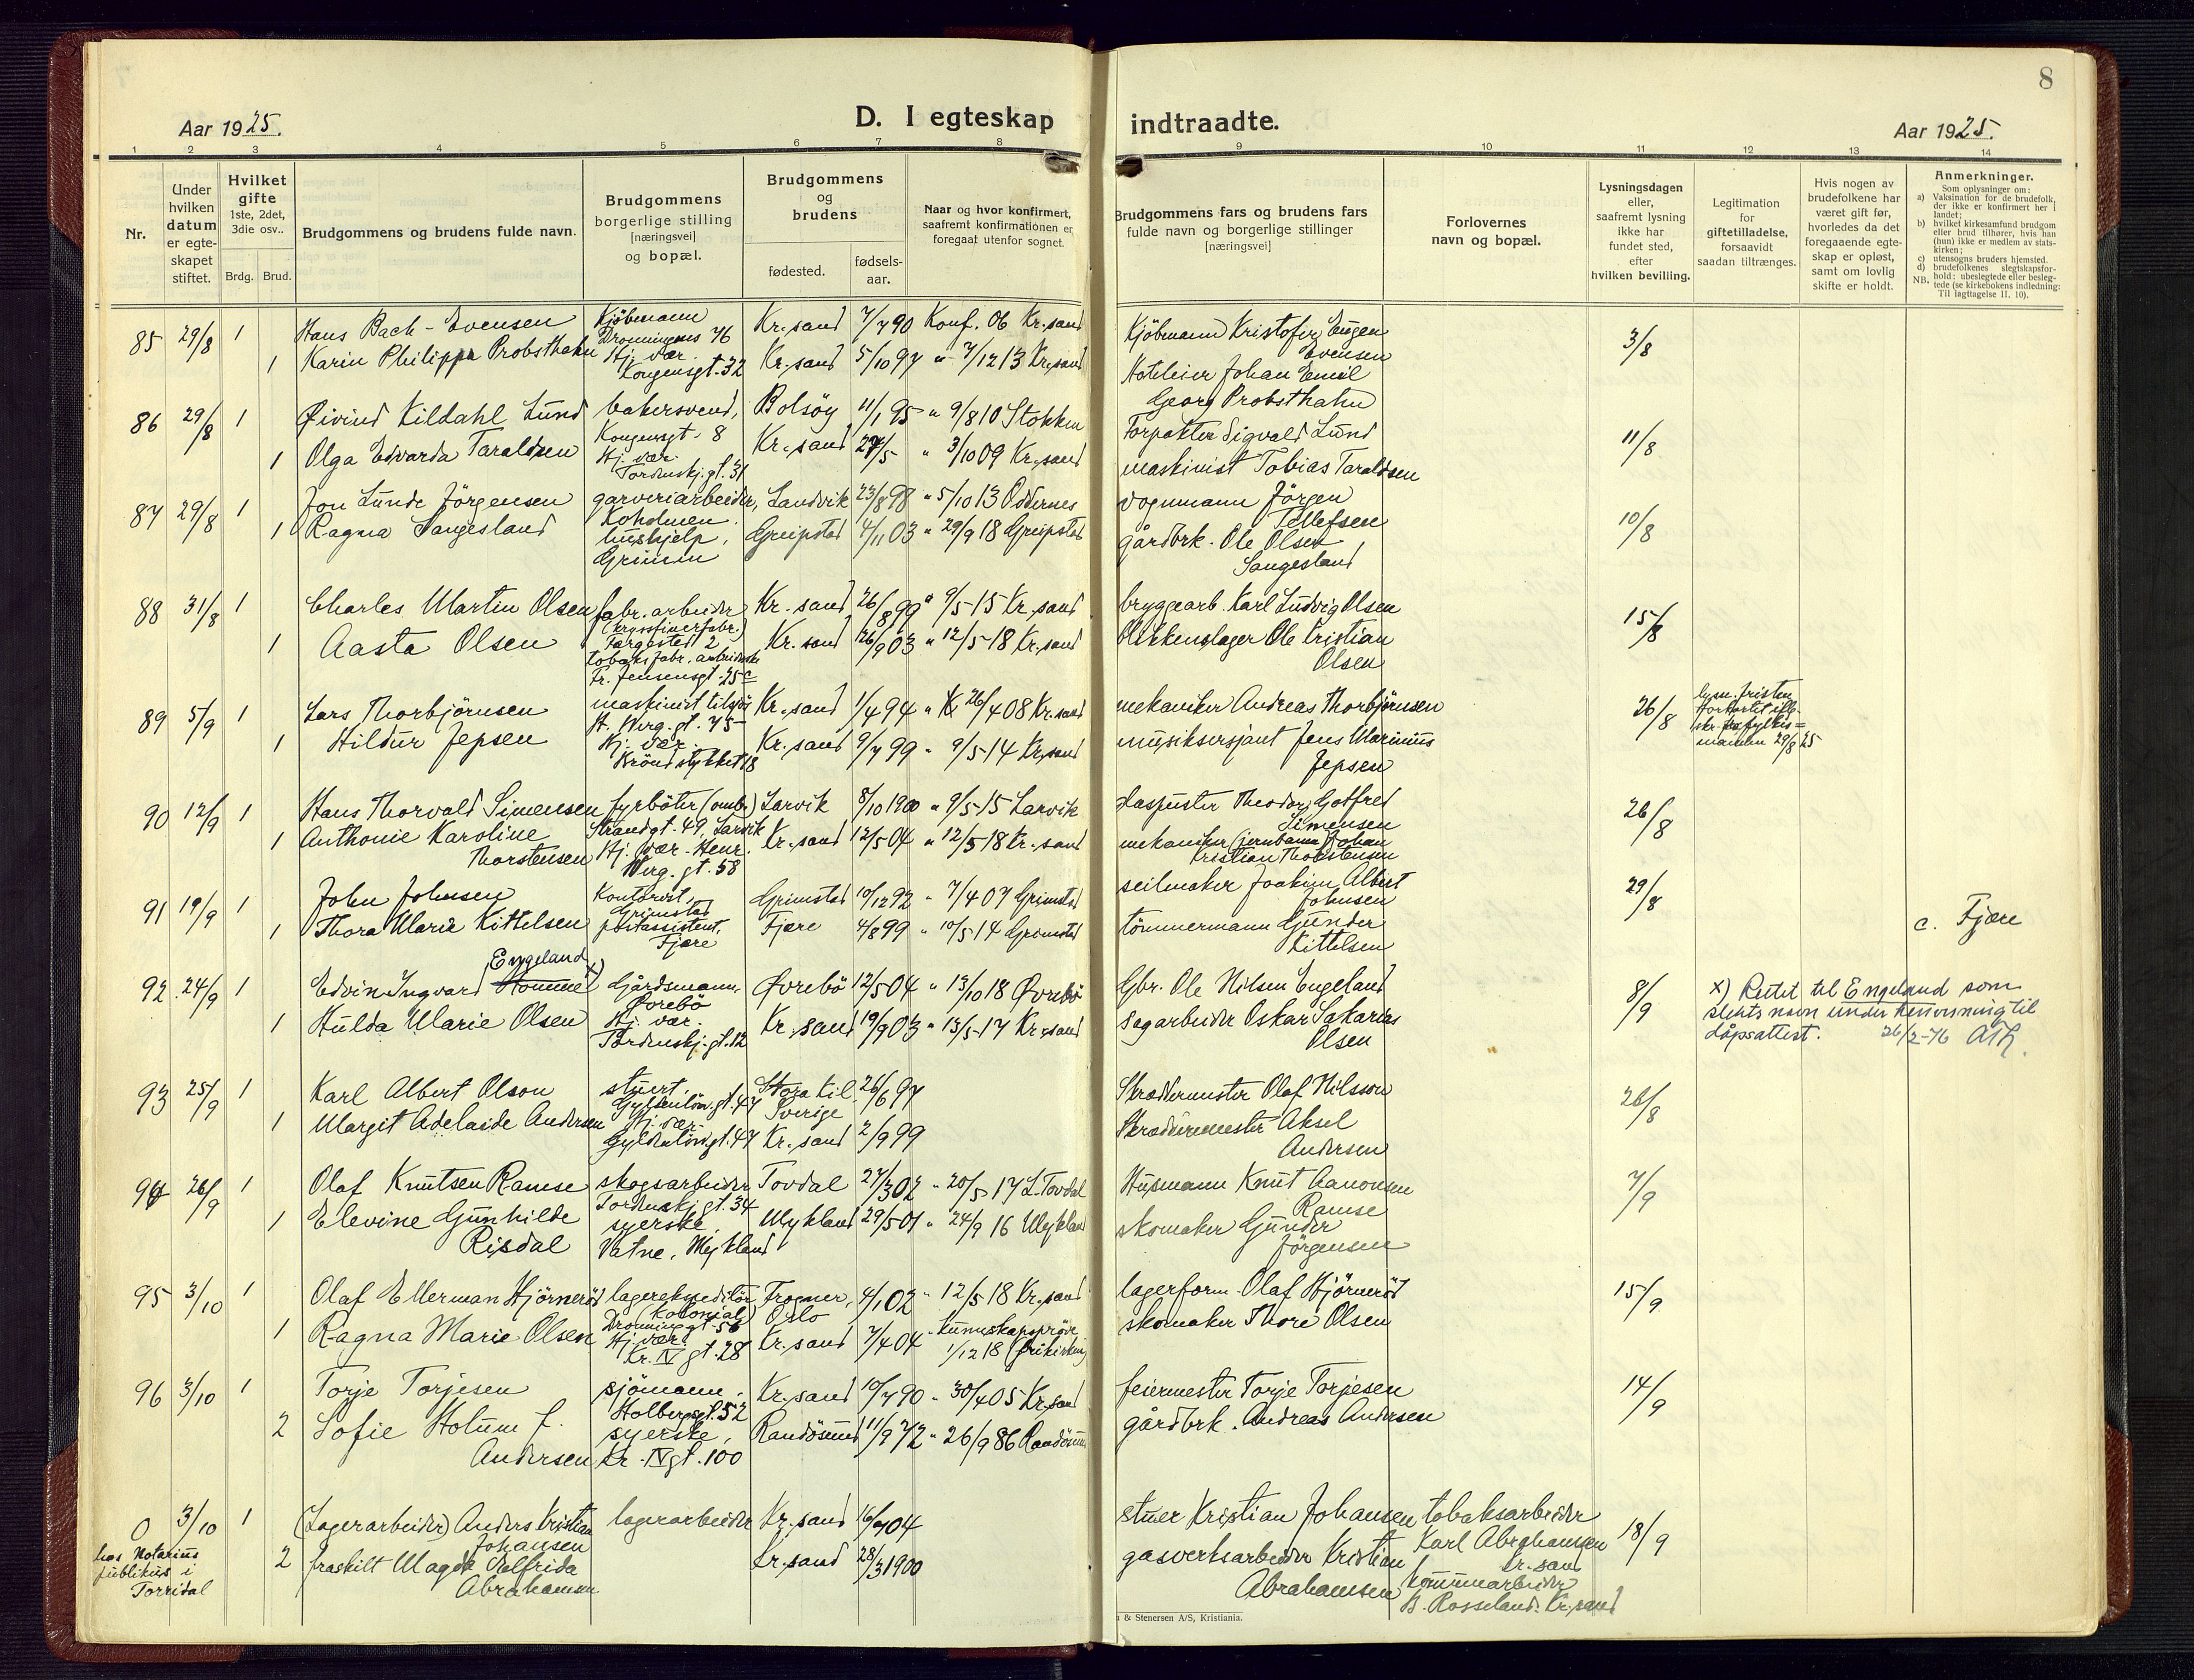 8
Aar 1925.
D. I egteskap indtraadte.
Aar 1925.
1 2 3 4 5 6 7 8 9 10 11 12 13 14
Nr.
Under hvilken datum er egte-skapet stiftet.
Hvilket gifte 1ste, 2det, 3die osv..
Brdg. Brud.
Brudgommens og brudens fulde navn.
Brudgommens borgerlige stilling [næringsvei] og bopæl.
Brudgommens og brudens
fødested.
fødsels-aar.
Naar og hvor konfirmert, saafremt konfirmationen er foregaat utenfor sognet.
Brudgommens fars og brudens fars fulde navn og borgerlige stillinger [næringsvei]
Forlovernes navn og bopæl.
Lysningsdagen eller, saafremt lysning ikke har fundet sted, efter hvilken bevilling.
Legitimation for giftetilladelse, forsaavidt saadan tiltrænges.
Hvis nogen av brudefolkene har været gift før, hvorledes da det foregaaende egte-skap er opløst, samt om lovlig skifte er holdt.
Anmerkninger.
Som oplysninger om:
a) Vaksination for de brudefolk, der ikke er konfirmert her i landet;
b) hvilket kirkesamfund brudgom eller brud tilhører, hvis han (hun) ikke er medlem av stats-kirken;
c) utensogns bruders hjemsted.
d) brudefolkenes slegtskapsfor-hold: ubeslegtede eller besleg-tede (se kirkebokens indledning: Til Iagttagelse II. 10).
NB.
85 29/8 1 Hans Bach-Evensen Kjöbmann Dronningens 76 Kr.sand 7/7 90 Konf. 06 Kr.sand Kjöbmann Kristofer Eugen Evensen 3/8
1 Karin Philippa Probsthahn Hj. vær. Kongensgt. 32 Kr.sand 5/10 97 " 7/12 13 Kr.sand Hoteleier Johan Emil Georg Probsthahn
86 29/8 1 Øivind Kildahl Lund bakersvend, Kongensgt. 8 Bolsöy 11/1 95 " 9/8 10 Stokken Forpakter Sigvald Lund 11/8
1 Olga Edvarda Taraldsen Hj. vær. Tordenskj.gt. 31 Kr.sand " 3/10 09 Kr.sand maskinist Tobias Taraldsen
87 29/8 1 Jon Lunde Jörgensen garveriarbeider, Koholmen. Landvik 23/8 98 " 5/10 13 Oddernes vognmann Jörgen Tellefsen 10/8
1 Ragna Sangesland hushjelp, Grimm Greipstad 4/11 03 " 29/9 18 Greipstad gårdbrk. Ole Olsen Sangesland
88 31/8 1 Charles Martin Olsen fabr. arbeider (kryssfinerfabr.) Torgested 2 Kr.sand 26/8 99 " 9/5 15 Kr.sand bryggearb. Karl Ludvig Olsen 15/8
1 Aasta Olsen tobaksfabr. arbeiderske Fr. Jensensgt. 25c Kr.sand 26/9 03 " 12/5 18 Kr.sand Blikkenslager Ole Kristian Olsen
89 5/9 1 Lars Thorbjörnsen maskinist tilsjös H. Werg.gt. 75 Kr.sand 1/4 94 " 26/4 08 Kr.sand mekaniker Andreas Thorbjörnsen 26/8
1 Hildur Jepsen Hj. vær. Kröndstykket 18 Kr.sand 9/7 99 " 9/5 14 Kr.sand musiksersjant Jens Marinius Jepsen
lysn. fristen forkortet iflg. skr. fra fylkes=mannen 29/8 25
90 12/9 1 Hans Thorvald Simensen fyrböter (omb.) Strandgt. 49, Larvik Larvik 8/10 1900 " 9/5 15 Larvik Haspuster Theodor Gotfred Simensen 26/8
1 Anthonie Karoline Thorstensen Hj. vær. Henr. Werg. gt. 58 Kr.sand 12/5 04 " 12/5 18 Kr.sand mekaniker (jernbane) Johan Kristian Thorstensen
91 19/9 1 John Johnsen Kontorist, Grimstad Grimstad 10/12 92 " 7/4 07 Grimstad seilmaker Joakim Albert Johnsen 29/8
1 Thora Marie Kittelsen postassistent, Fjære Fjære 4/8 99 " 10/5 14 Grimstad tömmermann Gunder Kittelsen
c. Fjære
92 24/9 1 Edvin Ingvard Homme x) Engeland Gårdsmann, Øvrebö Øvrebö 12/5 04 " 13/10 18 Øvrebö Gbr. Ole Nilsen Engeland 8/9
1 Hulda Marie Olsen Hj. vær. Tordenskj.gt. 12 Kr.sand 19/9 03 " 13/5 17 Kr.sand sagarbeider Oskar Sakarias Olsen
x) Rettet til Engeland som slektsnavn under henvisning til dåpsattest. 26/2-76
93 25/9 1 Karl Albert Olson stuert. Gyldenlöv.gt. 47 Stora Kil Sverige 26/6 97 Skreddermester Olaf Nilsson 26/8
1 Margit Adelaide Andersen Hj. vær. Gyldenlövgt. 47 Kr.sand 2/9 99 Skreddermester Aksel Andersen
94 26/9 1 Olaf Knutsen Ramse skogsarbeider Tordenskj.gt. 34 Tovdal 27/3 02 " 20/5 17 L. Tovdal Husmann Knut Aanonsen Ramse 7/9
1 Elevine Gunhilde Risdal syerske. Vatne, Mykland Mykland 29/5 01 " 24/9 16 Mykland skomaker Gunder Jörgensen
95 3/10 1 Olaf Ellerman Hjörneröd lagerekspeditör (Kolonial) Dronninggt. 56 Frogner, Oslo 4/1 02 " 12/5 18 Kr.sand lagerform. Olaf Hjörneröd 15/9
1 Ragna Marie Olsen Hj. vær. Kr. IV gt. 28 Kr.sand 7/4 04 " kunnskapspröve 1/12 18 (frikirken) skomaker Thore Olsen
96 3/10 1 Torje Torjesen sjömann. Holbergsgt. 52 Kr.sand 10/7 90 " 30/4 05 Kr.sand feiermester Torje Torjesen 14/9
2 Sofie Holum f. Andersen syerske, Kr. IV gt. 100 Randösund 11/9 72 " 26/9 86 Randösund gårdbrk. Andreas Andersen
0 3/10 1 (Lagerarbeider) Anders Kristian Johansen lagerarbeider Kr.sand 04 stuer Kristian Johansen tobaksarbeider Karl Abrahamsen Kr.sand 18/9
hos Notarius publikus i Torridal
2 fraskilt Magda Elfrida Abrahamsen Kr.sand 28/3 1900 gasverksarbeider Kristian Abrahamsen kommunearbeider B. Rosseland. Kr.sand
& Stenersen A/S, Kristiania.